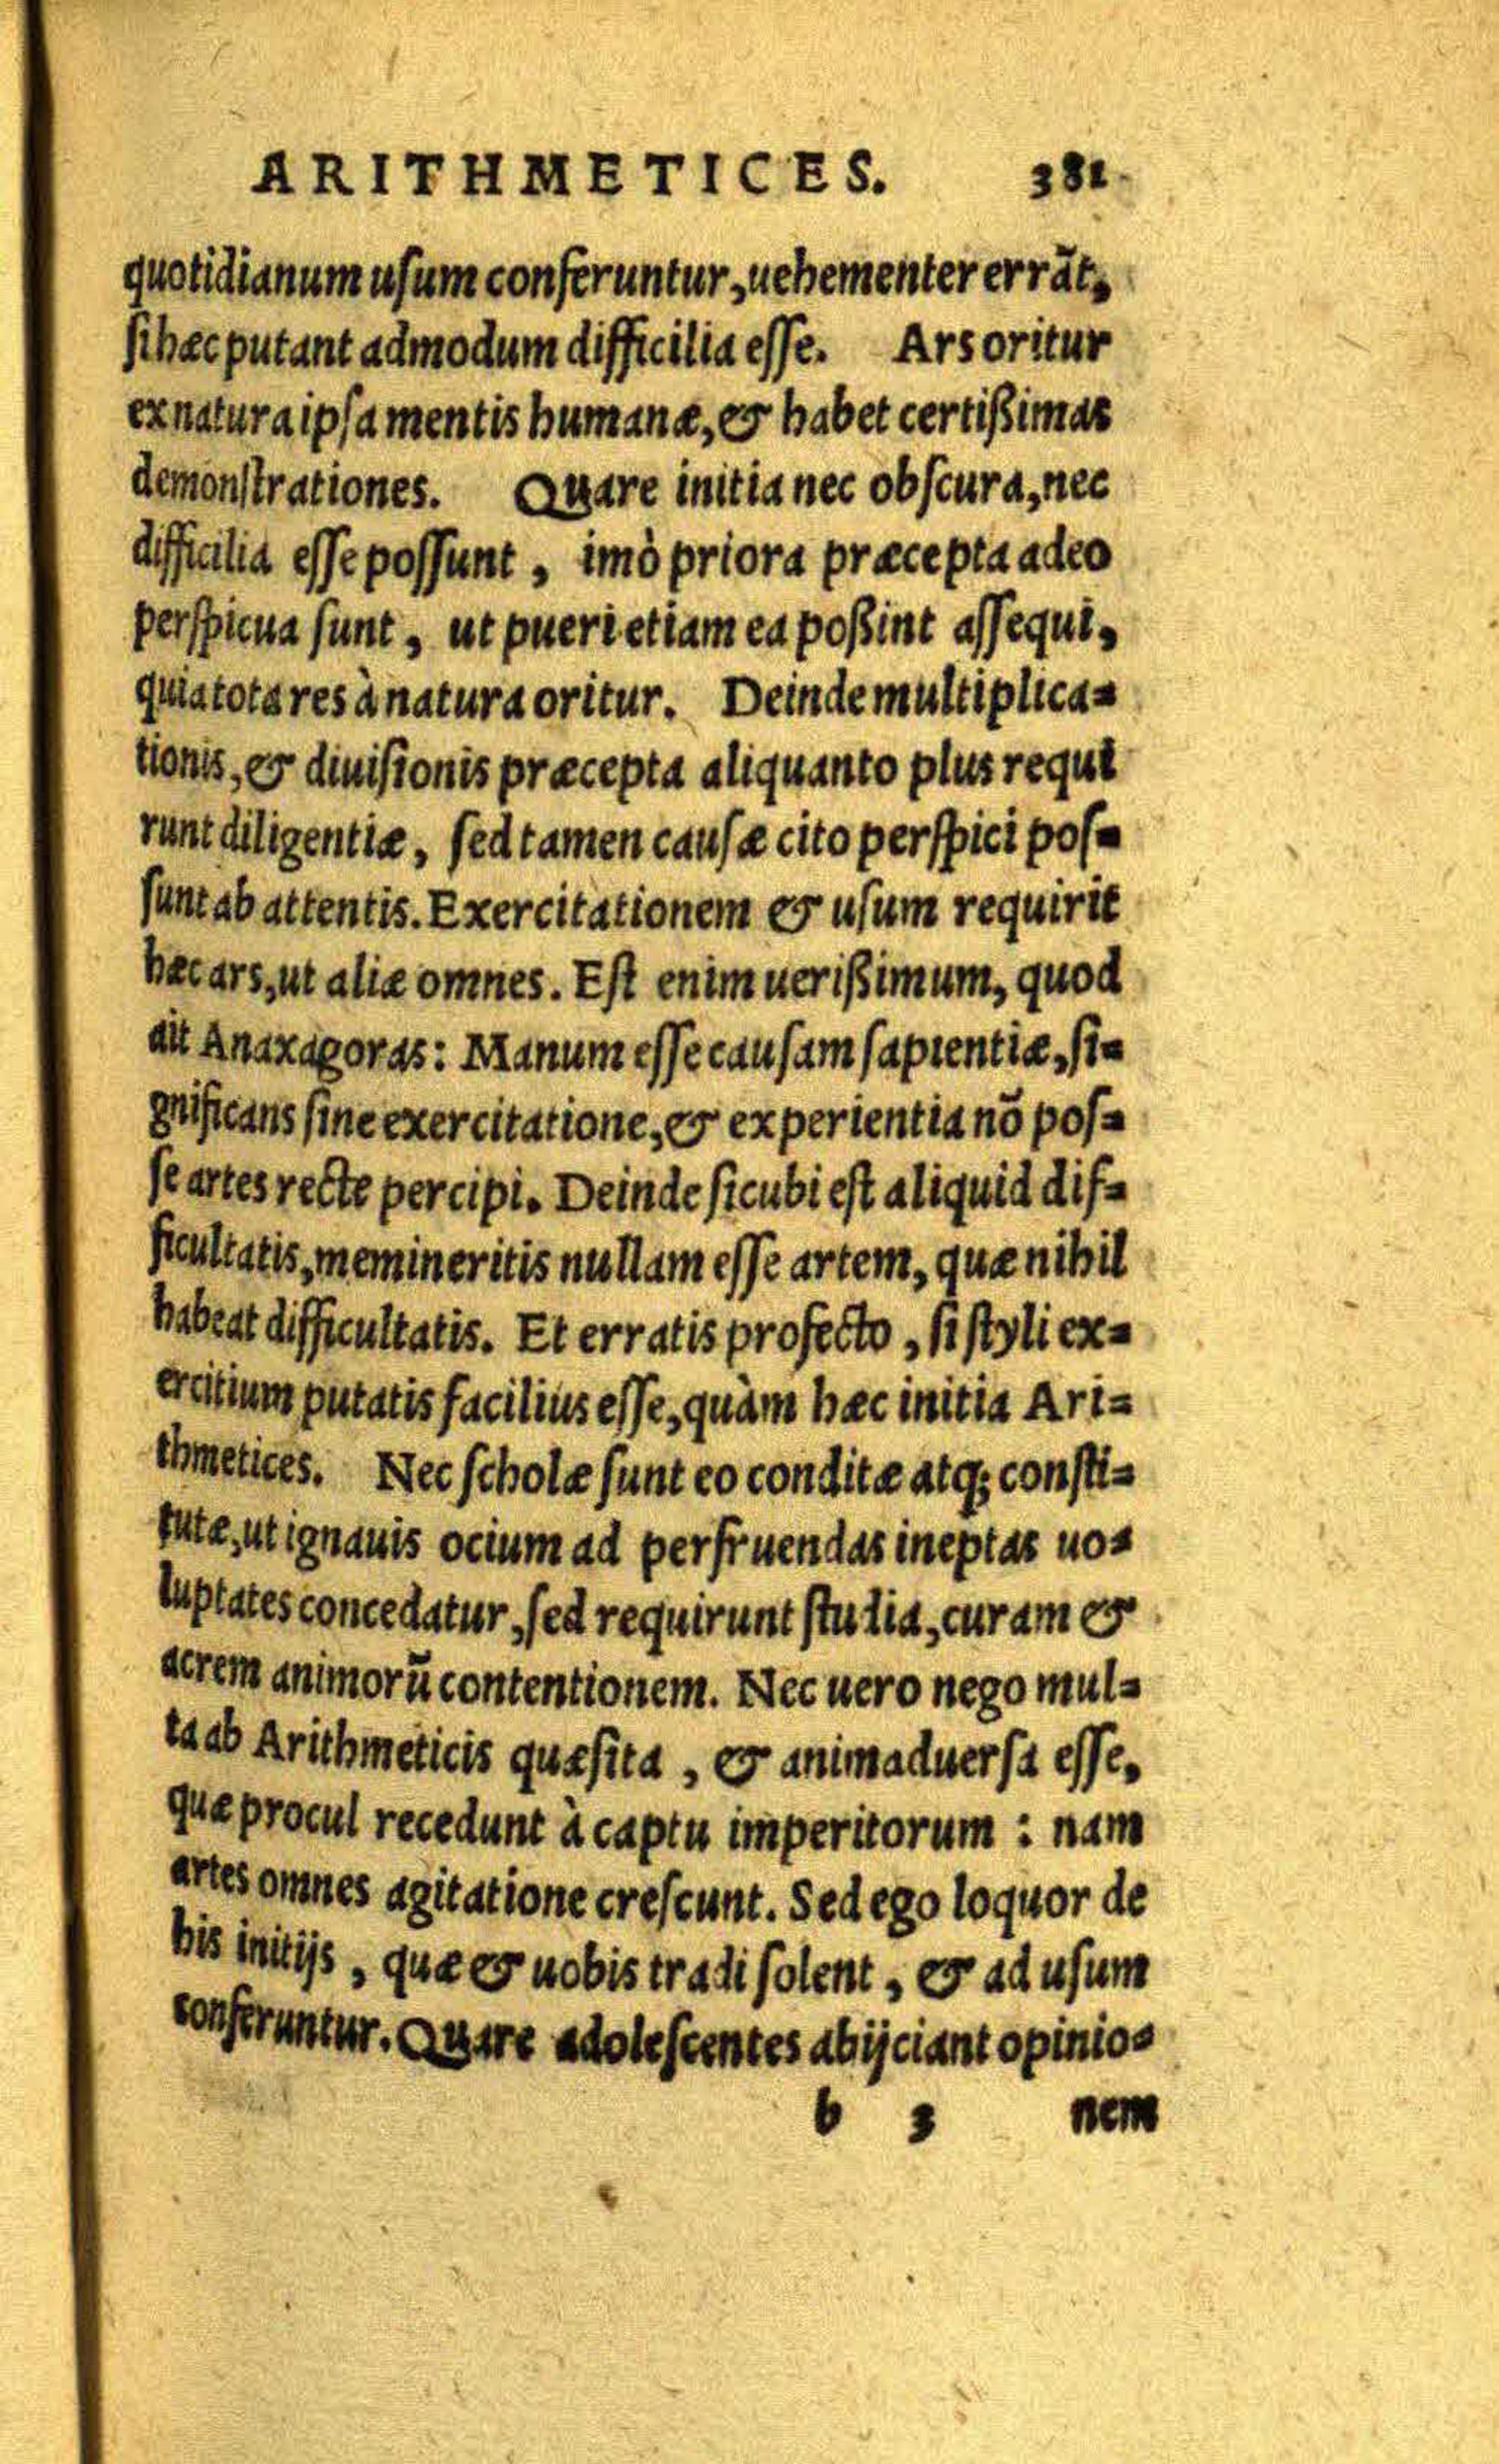 ARITHMETICES. 381
quotidianum uſum conferuntur, uehementer errāt,
ſi hæc putant admodum difficilia eſſe. Ars oritur
ex natura ipſa mentis humanæ, & habet certißimas
demonſtrationes. Quare initia nec obſcura, nec
difficilia eſſe poſſunt, imò priora præcepta adeo
perſpicua ſunt, ut pueri etiam ea poßint aſſequi,
quia tota res à natura oritur. Deinde multiplica=
tionis, & diuiſionis præcepta aliquanto plus requi
runt diligentiæ, ſed tamen cauſæ cito perſpici poſ=
ſunt ab attentis. Exercitationem & uſum requirit
hæc ars, ut aliæ omnes. Eſt enim uerißimum, quod
ait Anaxagoras: Manum eſſe cauſam ſapientiæ, ſi=
gnificans ſine exercitatione, & experientia nō poſ=
ſe artes recte percipi. Deinde ſicubi eſt aliquid dif=
ficultatis, memineritis nullam eſſe artem, quæ nihil
habeat difficultatis. Et erratis profecto, ſi ſtyli ex=
ercitium putatis facilius eſſe, quàm hæc initia Ari=
thmetices. Nec ſcholæ ſunt eo conditæ atq; conſti=
tutæ, ut ignauis ocium ad perfruendas ineptas uo=
luptates concedatur, ſed requirunt ſtudia, curam &
acrem animorū contentionem. Nec uero nego mul=
ta ab Arithmeticis quæſita, & animaduerſa eſſe,
quæ procul recedunt à captu imperitorum : nam
artes omnes agitatione creſcunt. Sed ego loquor de
his initijs, quæ & uobis tradi ſolent, & ad uſum
conferuntur. Quare adoleſcentes abijciant opinio=
b 3 nem